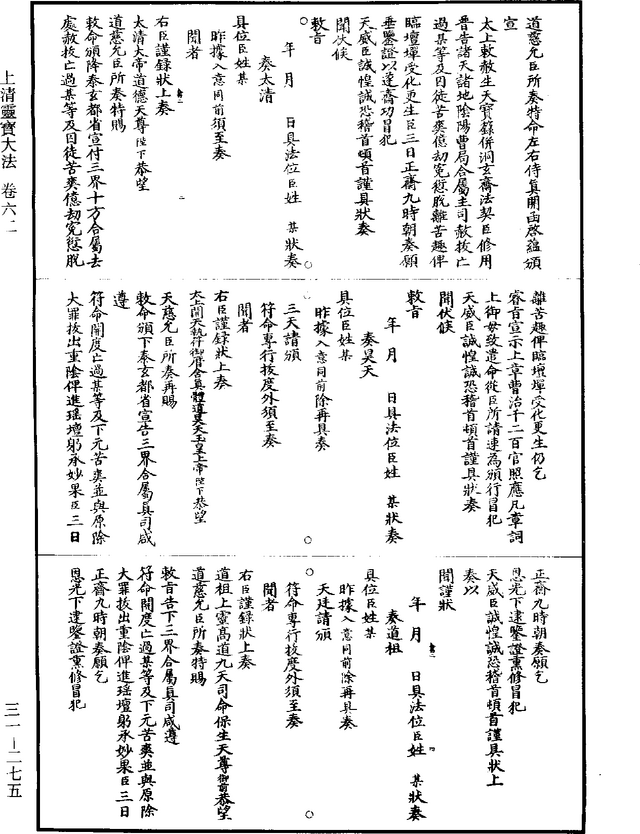 道慈允臣所奏特命左右侍真開函啓蘊頒
宣
太上敕赦生天寶籙併洞玄齋法契臣修用
普告諸天諸地陰陽曹局合屬主司赦拔亡
過某等及囚徒苦爽億劫冤愆脫離苦趣伻
臨壇墠受化更生臣三日正齋九時朝奏願
垂鑒證以遂齋功冒犯
天威臣誠惶誠恐稽首頓首謹具狀奏
聞伏候
敕旨
年 月 日具法位臣姓 某狀奏
奏太清
具位臣姓某
昨據入意同前須至奏
聞者
右臣謹錄狀上奏
太清大帝道德天尊陛下恭望
道慈允臣所奏特賜
敕命頒降泰玄都省宣付三界十方合屬去
處赦拔亡過某等及囚徒苦爽億劫冤愆脫
離苦趣俾臨壇墠受化更生仍乞
睿旨宣示上章曹治千二百官照應凡章詞
上御毋致遣命從臣所請速為頒行冒犯
天威臣誠惶誠恐稽首頓首謹具狀奏
聞伏候
敕旨
年 月 日具法位臣姓 某狀奏
奏昊天
具位臣姓某
昨據入意同前除再具奏
三天請頒
符命專行拔度外須至奏
聞者
右臣謹錄狀上奏
太上開天執符御曆含真體道昊天玉皇上帝陛下恭望
天慈允臣所奏再賜
敕命頒下泰玄都省宣告三界合屬具司咸
遵
符命開度亡過某等及下元苦爽並與原除
大罪拔出重陰俾進瑤壇躬承妙果臣三日
正齋九時朝奏願乞
恩光下逮鑒證熏修冒犯
天威臣誠惶誠恐稽首頓首謹具狀上
奏以
聞謹狀
年 月 日具法位臣姓 某狀奏
奏道祖
具位臣姓某
昨據入意同前除再具奏
天廷請頒
符命專行拔度外須至奏
聞者
右臣謹錄狀上奏
道祖上靈高道九天司命保生天尊御前恭望
道慈允臣所奏特賜
敕旨告下三界合屬真司咸遵
符命開度亡過某等及下元苦爽並與原除
大罪拔出重陰俾進瑤壇躬承妙果臣三日
正齋九時朝奏願乞
恩光下逮鑒證熏修冒犯
上清靈寶大法 卷六二
三一—二七五